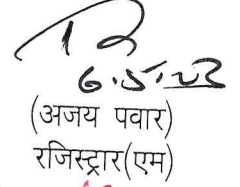 6.5.23
(अजय पवार)
रजिस्ट्रार(एम)